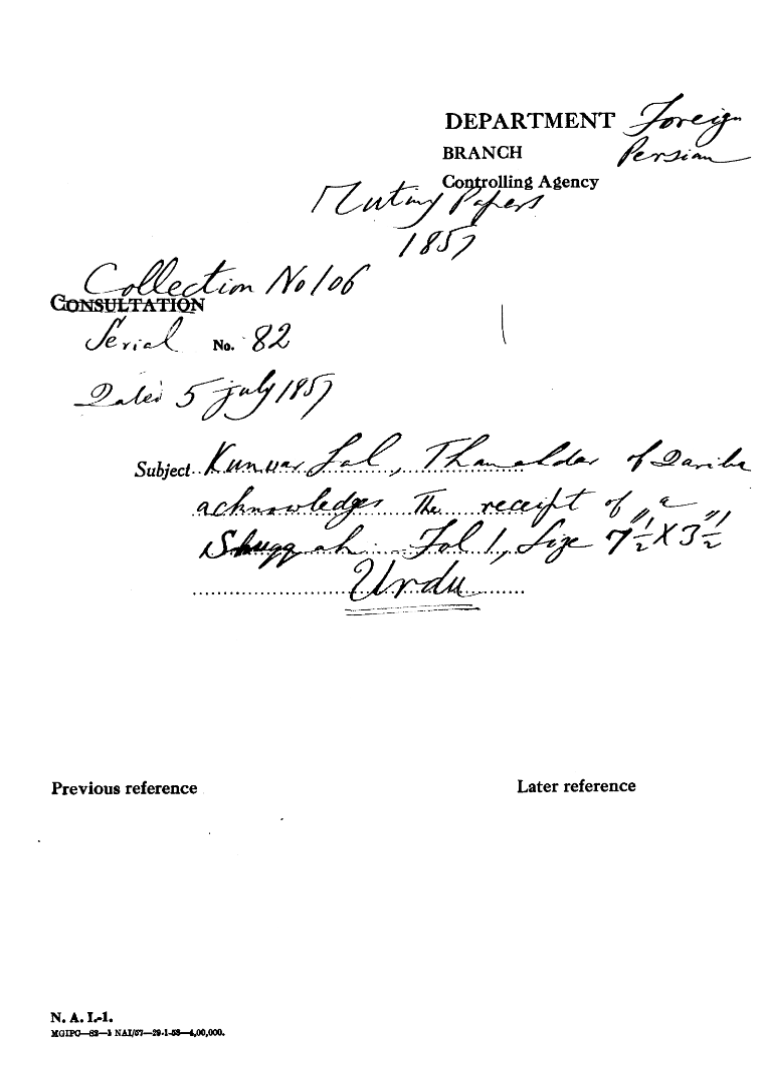 DEPARTMENT Foreign
BRANCH Persian
Controlling Agency
Mutiny Papers
1857
Collection No 106
CONSULTATION
Serial No. 82
Dated 5 july 1857
Subject Kunwar Lal, Thanaldar of Dariba
acknowledges The receipt of a
Shuqqah. Fol 1, Size 7½" X 3½"
Urdu
Previous reference Later reference
N. A. I.-1.
MGIPC—S2—1 NAI/57—29-1-58—4,00,000.